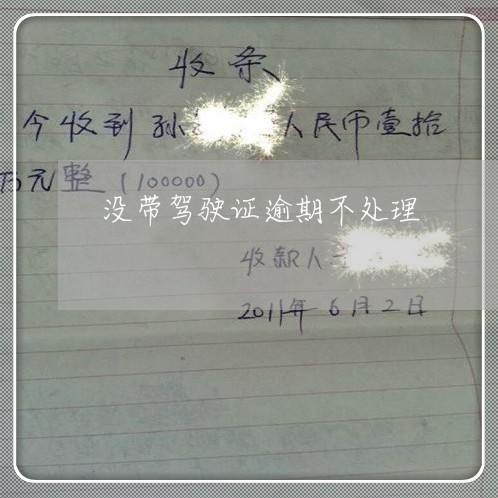 收条
今收到孙 人民币壹拾
万元整(100000)
没带驾驶证逾期不处理
收款人
2011年6月2日